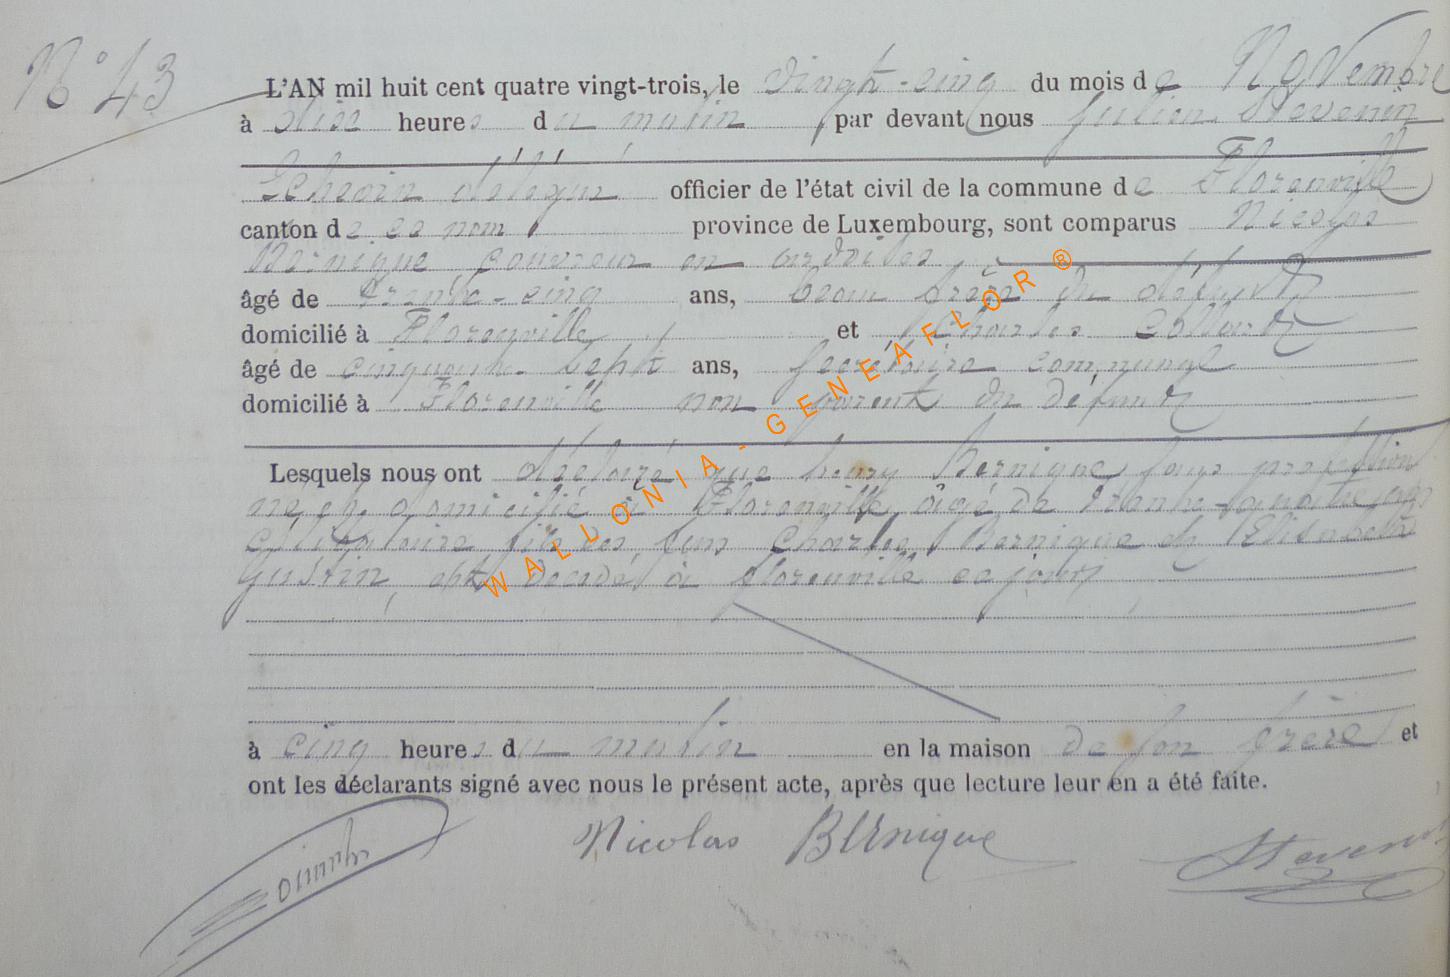 N° 43
L'AN mil huit cent quatre vingt-trois, le vingt-cinq du mois de Novembre
à dix heures du matin par devant nous Julien Stevenin
Echevin délégué officier de l'état civil de la commune de Florenville
canton de ce nom province de Luxembourg, sont comparus Nicolas
Bernique, couvreur en ardoises
âgé de trente-cinq ans, beau frère du défunt
domicilié à Florenville et Charles
âgé de cinquante-sept ans, secrétaire communal
domicilié à Florenville non parent du défunt
Lesquels nous ont déclaré que henry Bernique sans profession
né et domicilié à Florenville, âgé de trente-quatre ans
célibataire fils des feus Charles Bernique et Elisabeth
Gustin, est décédé à florenville ce jour
à cinq heures du matin en la maison de son frère et
ont les déclarants signé avec nous le présent acte, après que lecture leur en a été faite.
Nicolas Bernique Stevenin
WALLONIA - GENEAFLOR ®